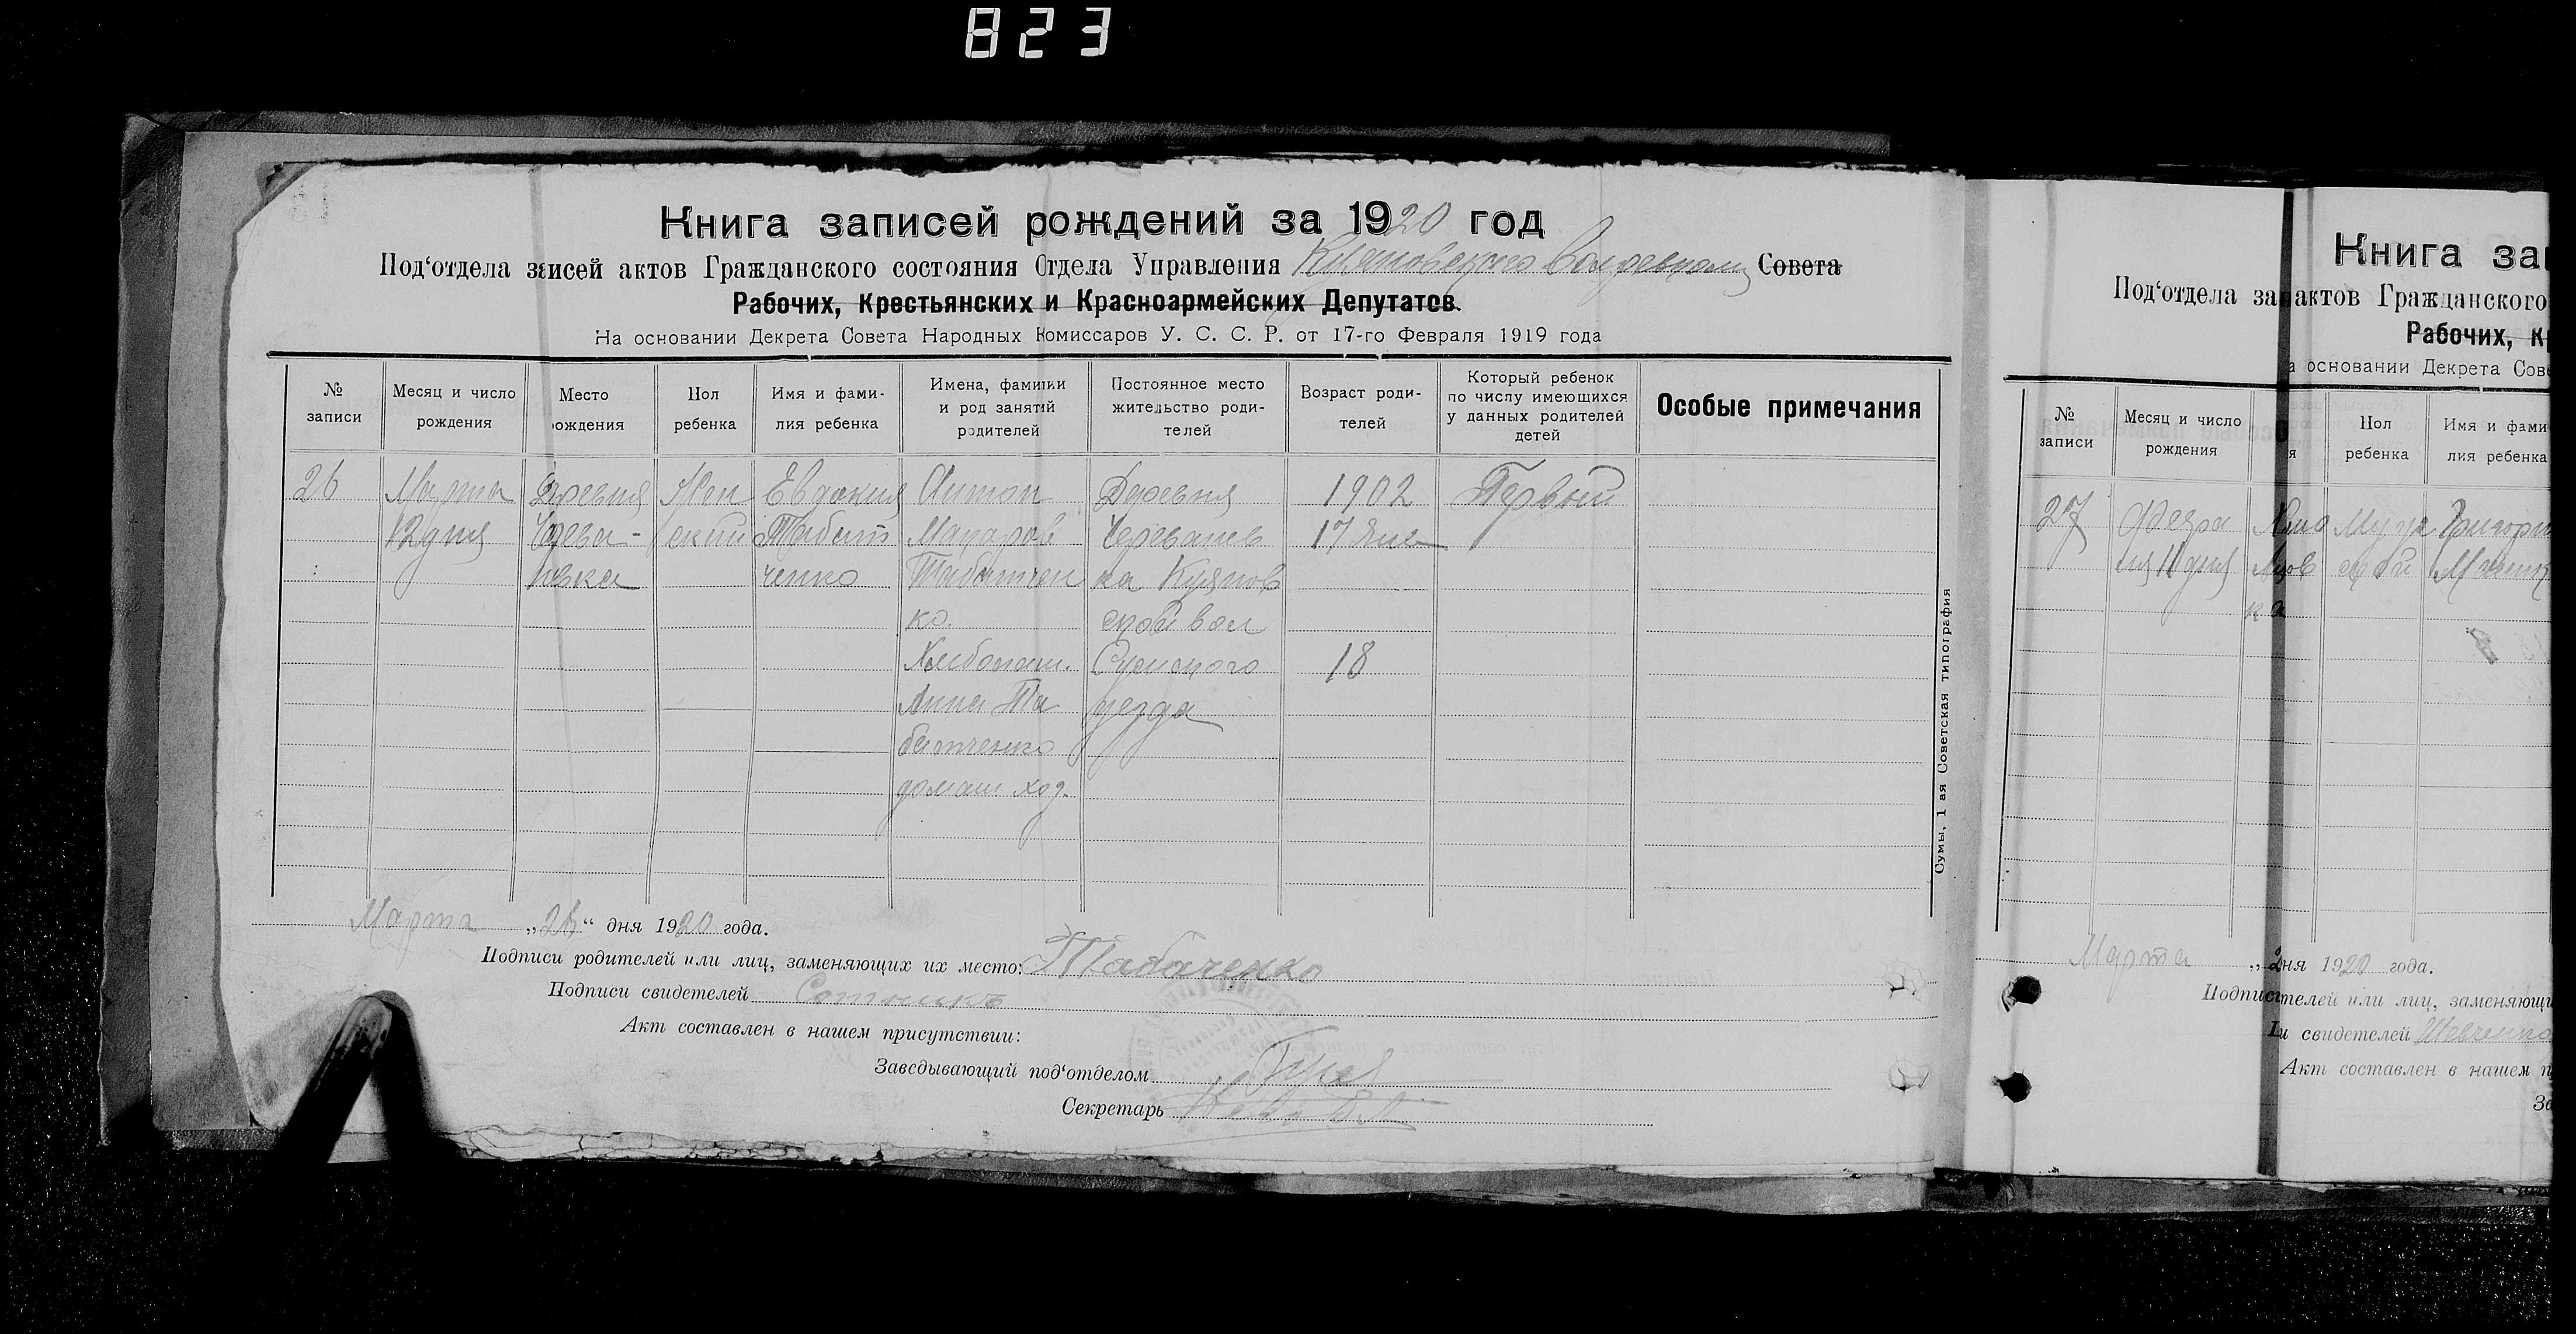 823
Книга записей рождений за 1920 год
Под‘отдела записей актов Гражданского состояния Отдела Управления Совета
Рабочих, Крестьянских и Красноармейских Депутатов.
На основании Декрета Совета Народных Комиссаров У. С. С. Р. от 17-го Февраля 1919 года
№ записи
Месяц и число рождения
Место рождения
Пол ребенка
Имя и фамилия ребенка
Имена, фамилии и род занятий родителей
Постоянное место жительство родителей
Возраст родителей
Который ребенок по числу имеющихся у данных родителей детей
Особые примечания
26
Марта
12 дня
Деревня
Женский
Евдокия
Антон
Макаров
Табатченко
Хлебопаш.
Анна Табатченко
домаш хоз.
Деревня
Сумского
уезда
1902
17 Янв
18
Первый
Марта „26“ дня 1920 года.
Подписи родителей или лиц, заменяющих их место: Табаченко
Подписи свидетелей Сотникъ
Акт составлен в нашем присутствии:
Заведывающий под‘отделом
Секретарь
Сумы, 1 ая Советская типография
Книга за
Под‘отдела за актов Гражданского
Рабочих, К
а основании Декрета Сов
№ записи
Месяц и число рождения
я
Пол ребенка
Имя и фами
лия ребенка
27
Февра
ля 11 дня
Марта „2 ня 1920 года.
Подпис телей или лиц, заменяющи
и свидетелей Шевченко
Акт составлен в нашем п
За